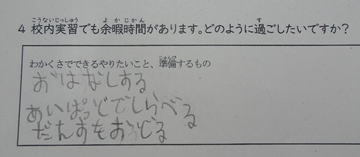 4 校内実習でも余暇時間があります。どのように過ごしたいですか？
わかくさでできるやりたいこと、準備するもの
おはなしする
あいぱっどでしらべる
だんすをおどる